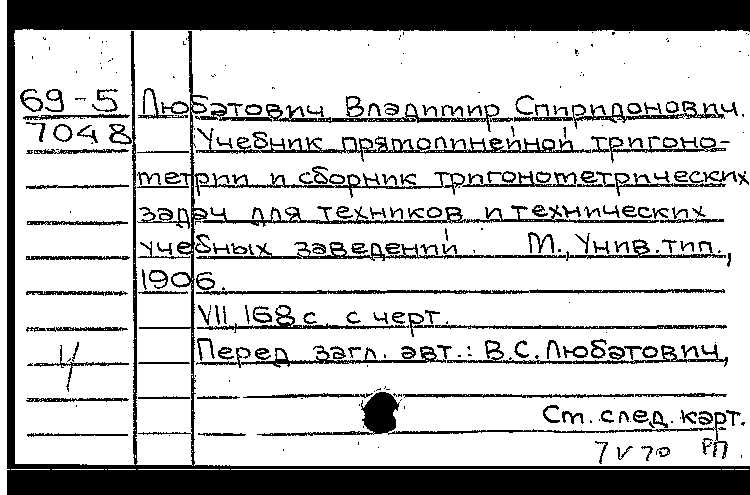 69-5 Любатович, Владимир Спиридонович.
7048 Учебник прямолинейной тригоно-
метрии и сборник тригонометрических
задач для техников и технических
учебных заведений. М., Унив. тип.,
1906.
VII, 168 с. с черт.
Перед загл. авт.: В.С. Любатович,
См. след. карт.
7 V 70 РП.